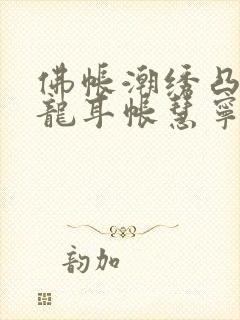 佛帐潮绣凸
龍耳帐慧寧
韵加